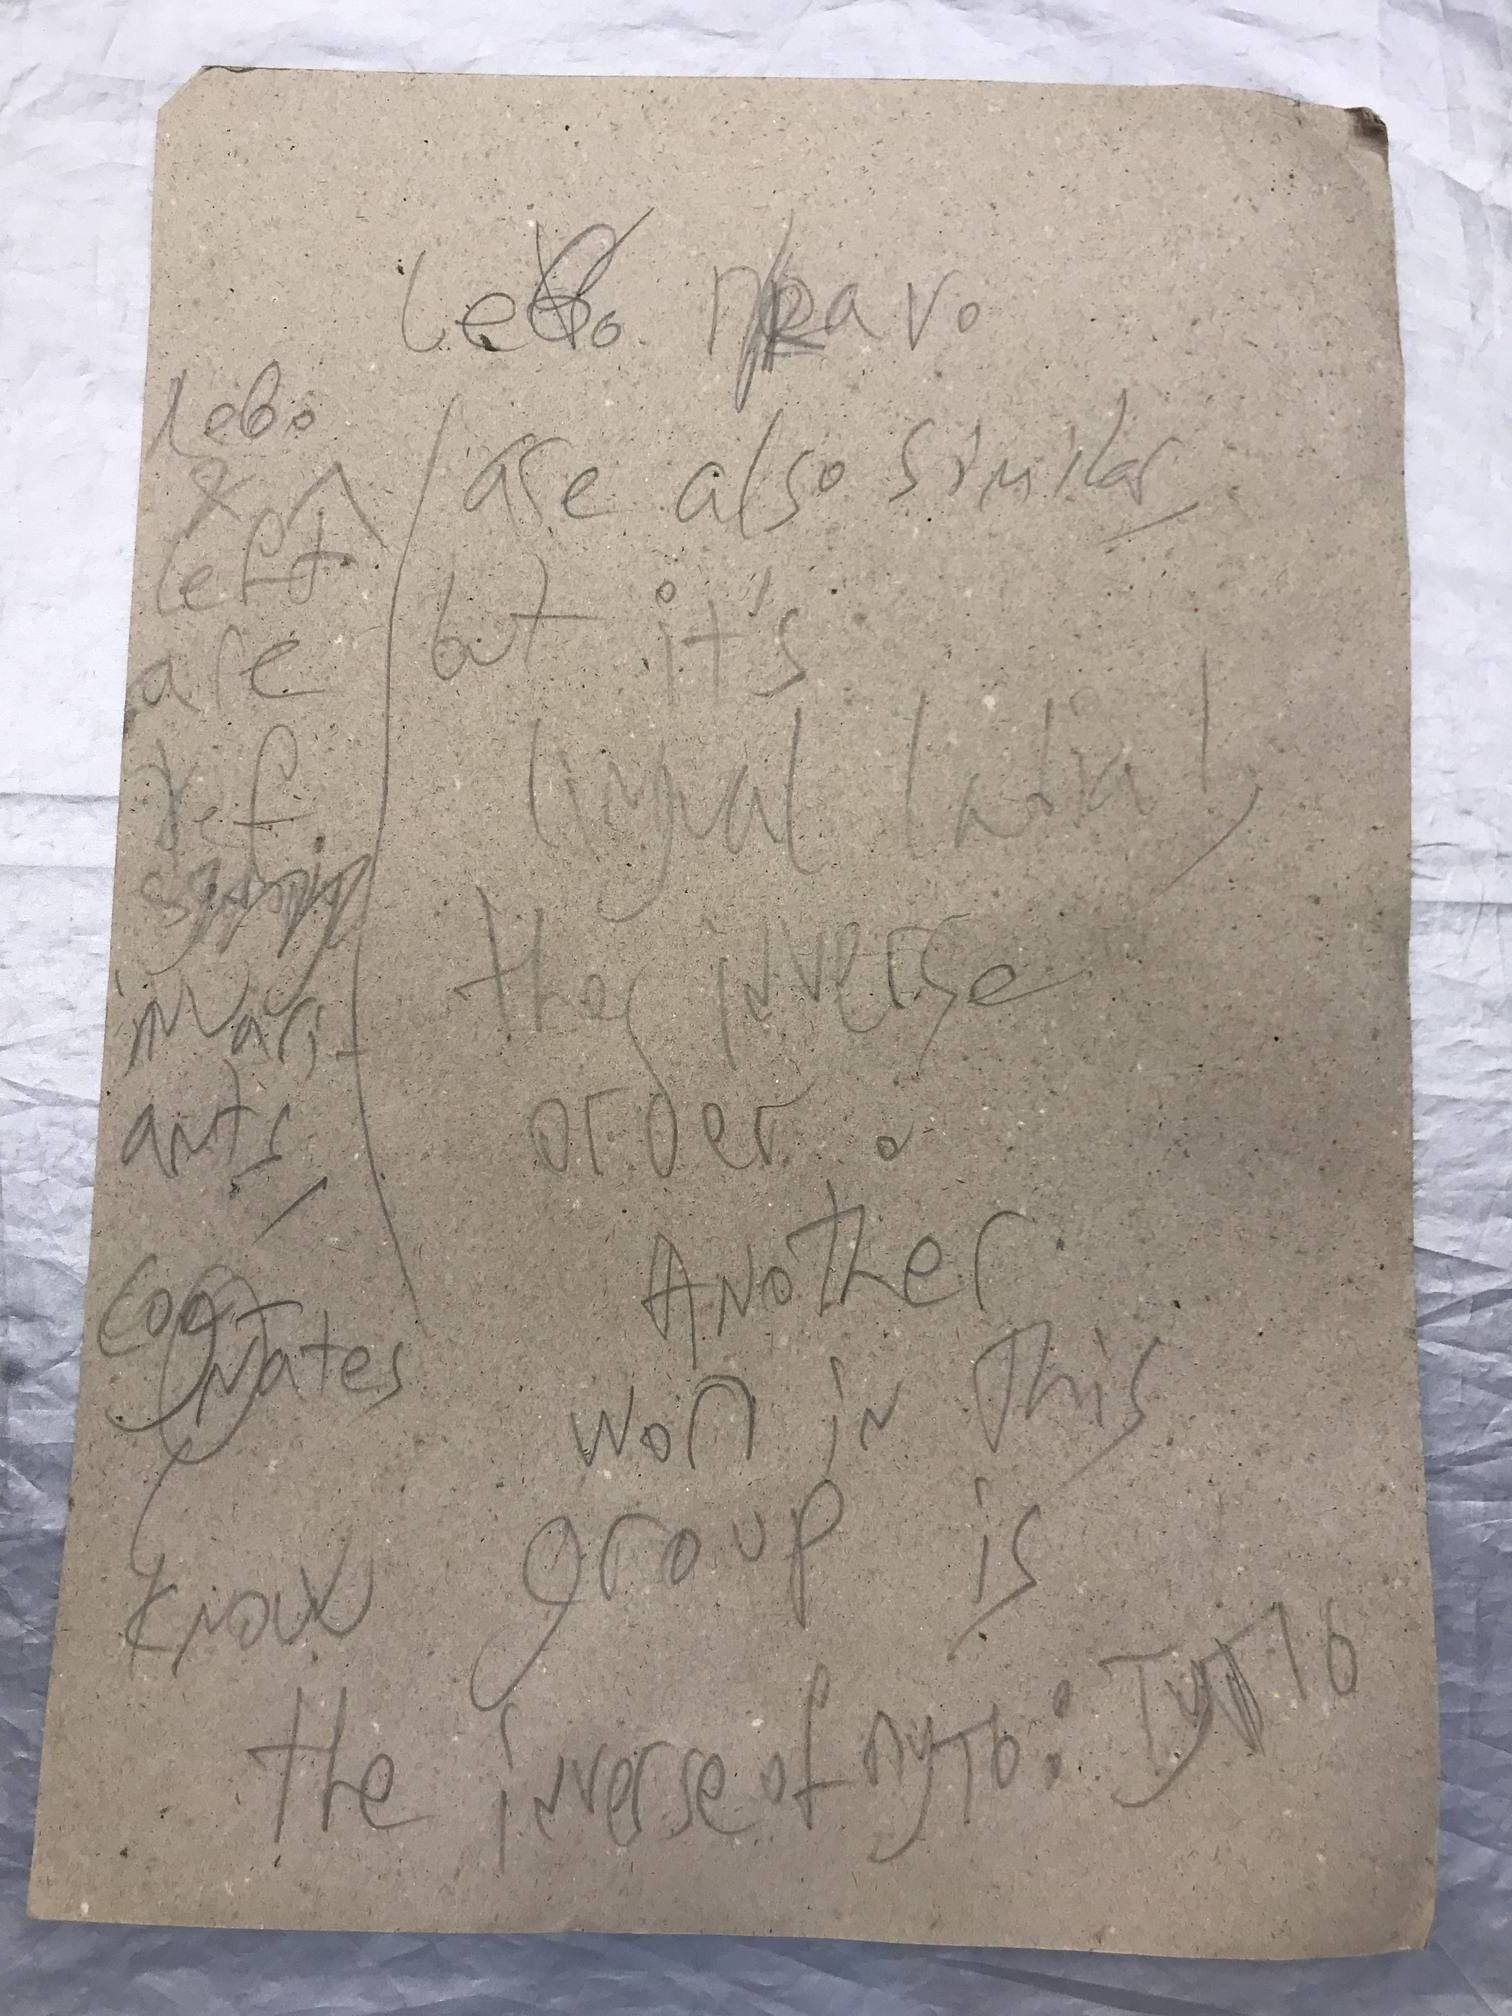 lebo
&
left
are
ref
invari
ants,
cog
nates
know
are also similar
but it's
lingual labial,
the inverse
order.
Another
in this
group is
the inverse of путь: